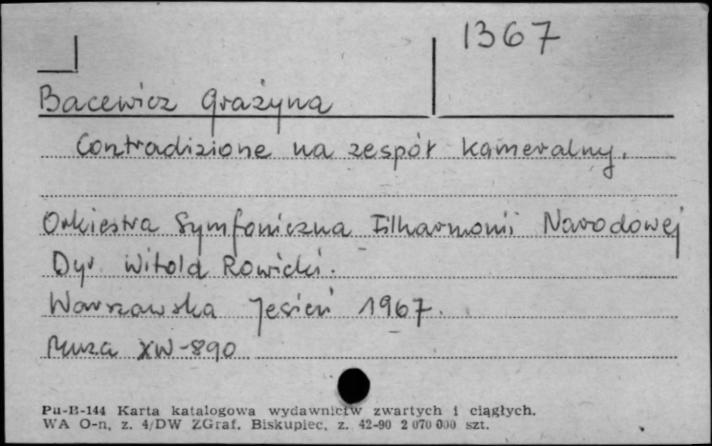 1367
Bacewicz Grażyna
Contradizione na zespół kameralny.
Orkiestra Symfoniczna Filharmonii Narodowej
Dyr. Witold Rowicki.
Warszawska Jesień 1967.
Muza XW-890
Pu-B-144 Karta katalogowa wydawnictw zwartych i ciągłych.
WA O-n, z. 4/DW ZGraf. Biskupiec, z. 42-90 2 070 000 szt.